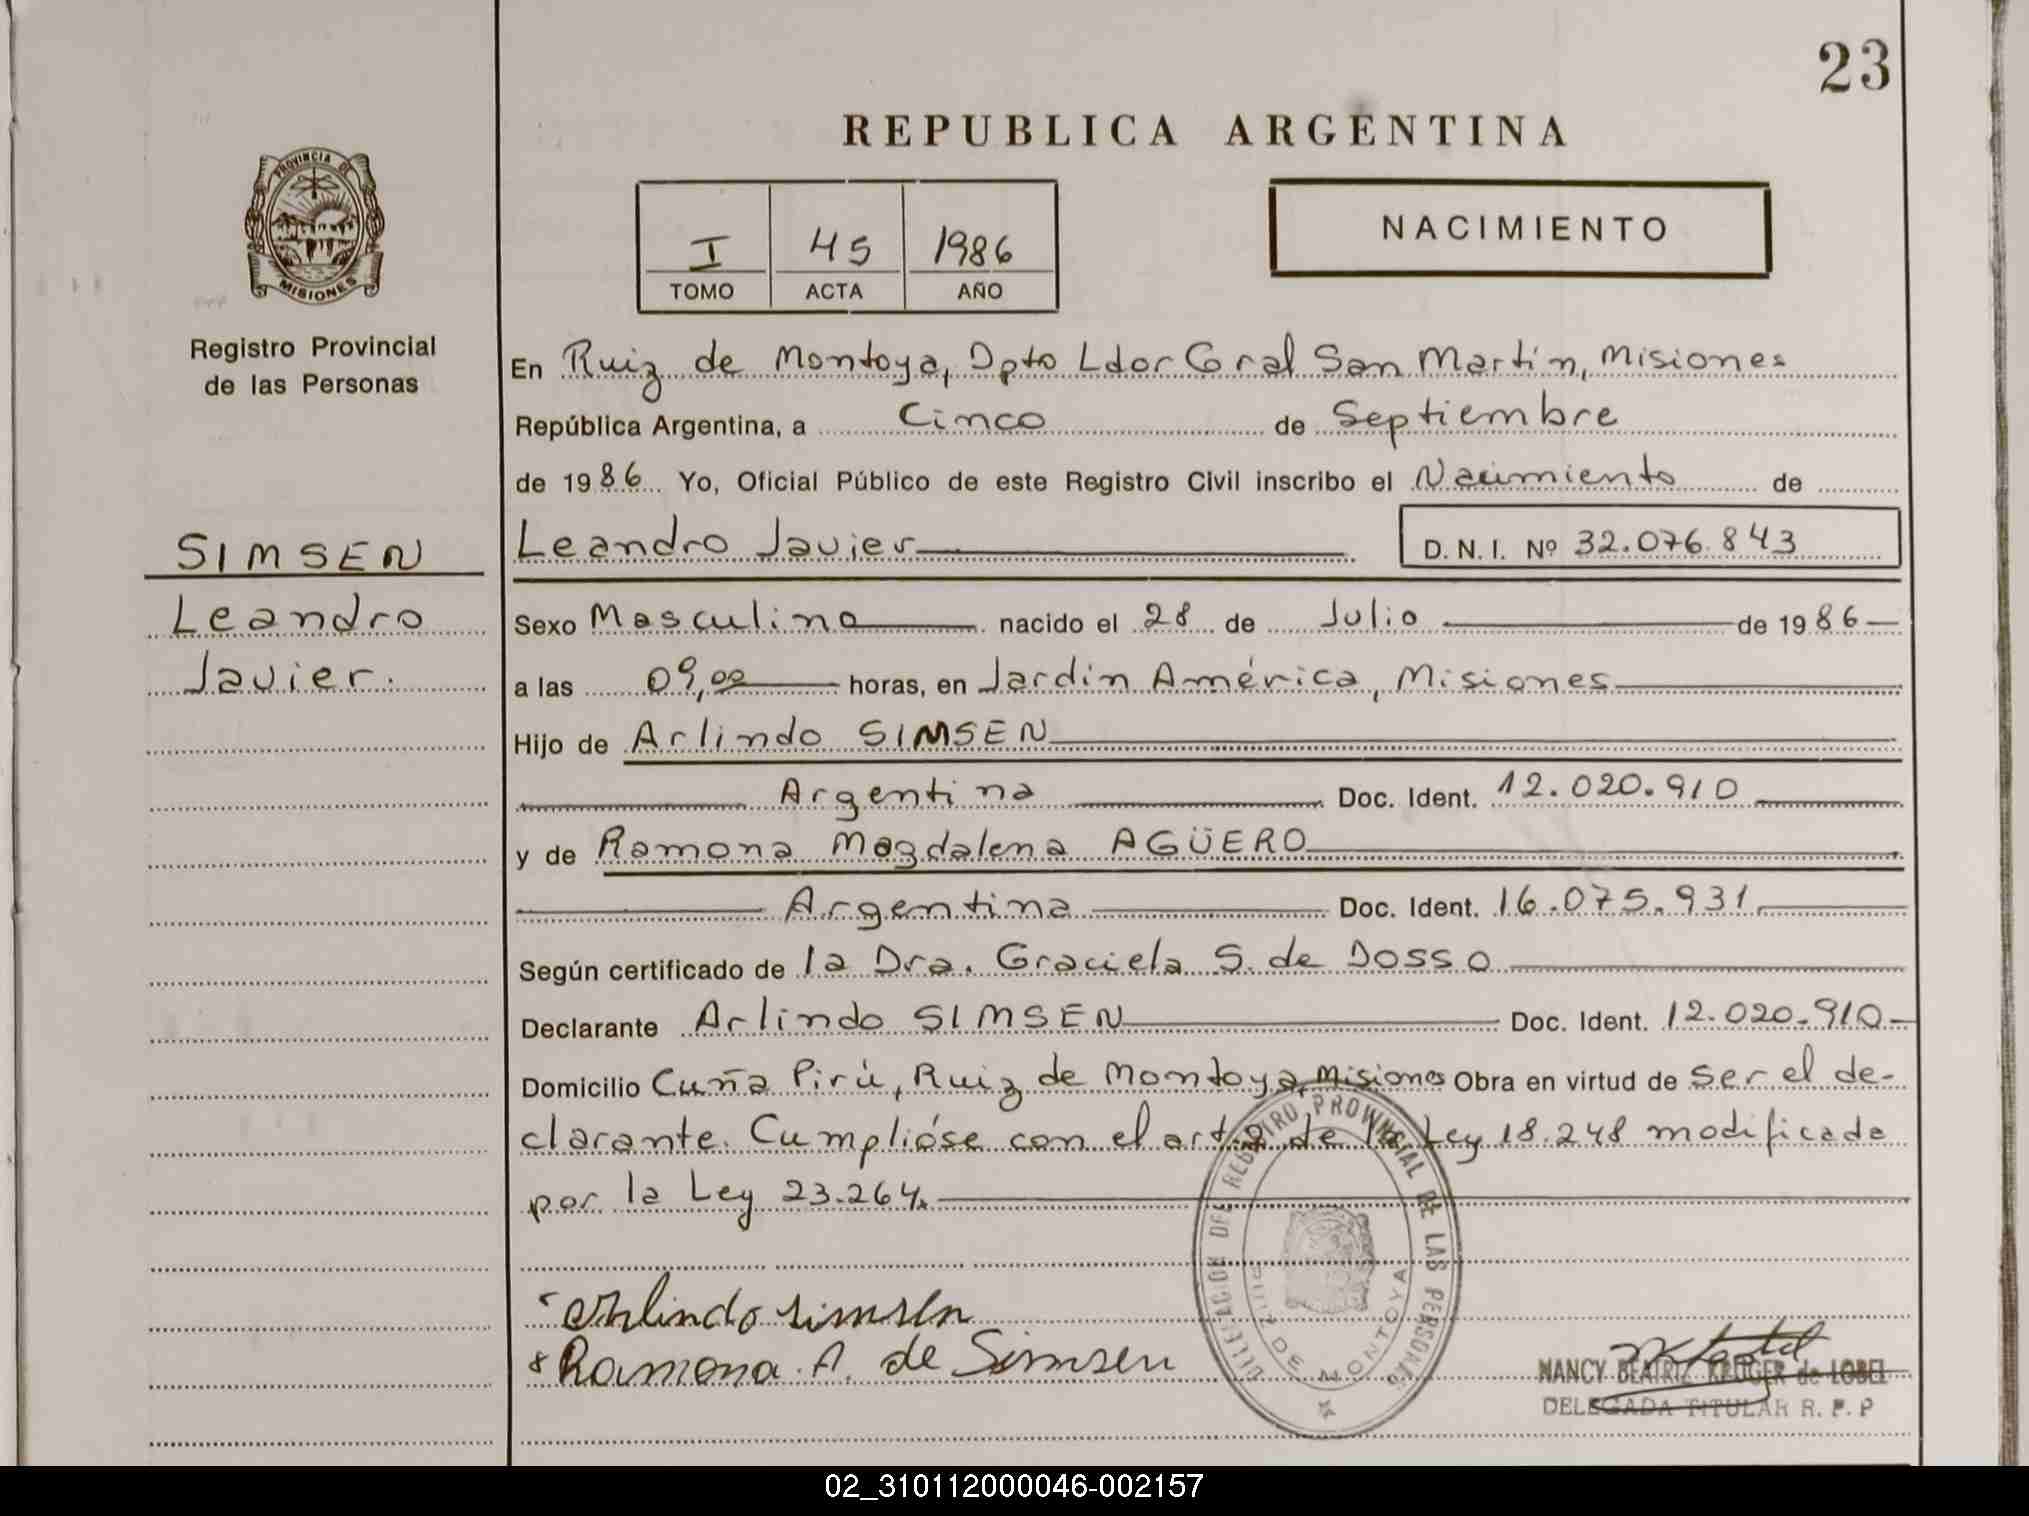 23
REPUBLICA ARGENTINA
PROVINCIA DE
MISIONES
I 45 1986
TOMO ACTA AÑO
NACIMIENTO
Registro Provincial
de las Personas
En Ruiz de Montoya, Dpto Ldor Gral San Martín, Misiones
República Argentina, a Cinco de Septiembre
de 1986 Yo, Oficial Público de este Registro Civil inscribo el Nacimiento de
SIMSEN
Leandro
Javier.
Leandro Javier D. N. I. Nº 32.076.843
Sexo Masculino nacido el 28 de Julio de 1986
a las 09,00 horas, en Jardín América, Misiones
Hijo de Arlindo SIMSEN
Argentina Doc. Ident. 12.020.910
y de Ramona Magdalena AGÜERO
Argentina Doc. Ident. 16.075.931
Según certificado de la Dra. Graciela S. de DOSSO
Declarante Arlindo SIMSEN Doc. Ident. 12.020.910
Domicilio Cuña Pirú, Ruiz de Montoya, Misiones Obra en virtud de ser el de-
clarante. Cumplióse con el art. 2 de la Ley 18.248 modificada
por la Ley 23.264.
Arlindo simsen
Ramona A. de Simsen
DELEGACION DEL REGISTRO PROVINCIAL DE LAS PERSONAS
RUIZ DE MONTOYA
NANCY BEATRIZ KRUGER de LOBEL
DELEGADA TITULAR R. P. P
02_310112000046-002157